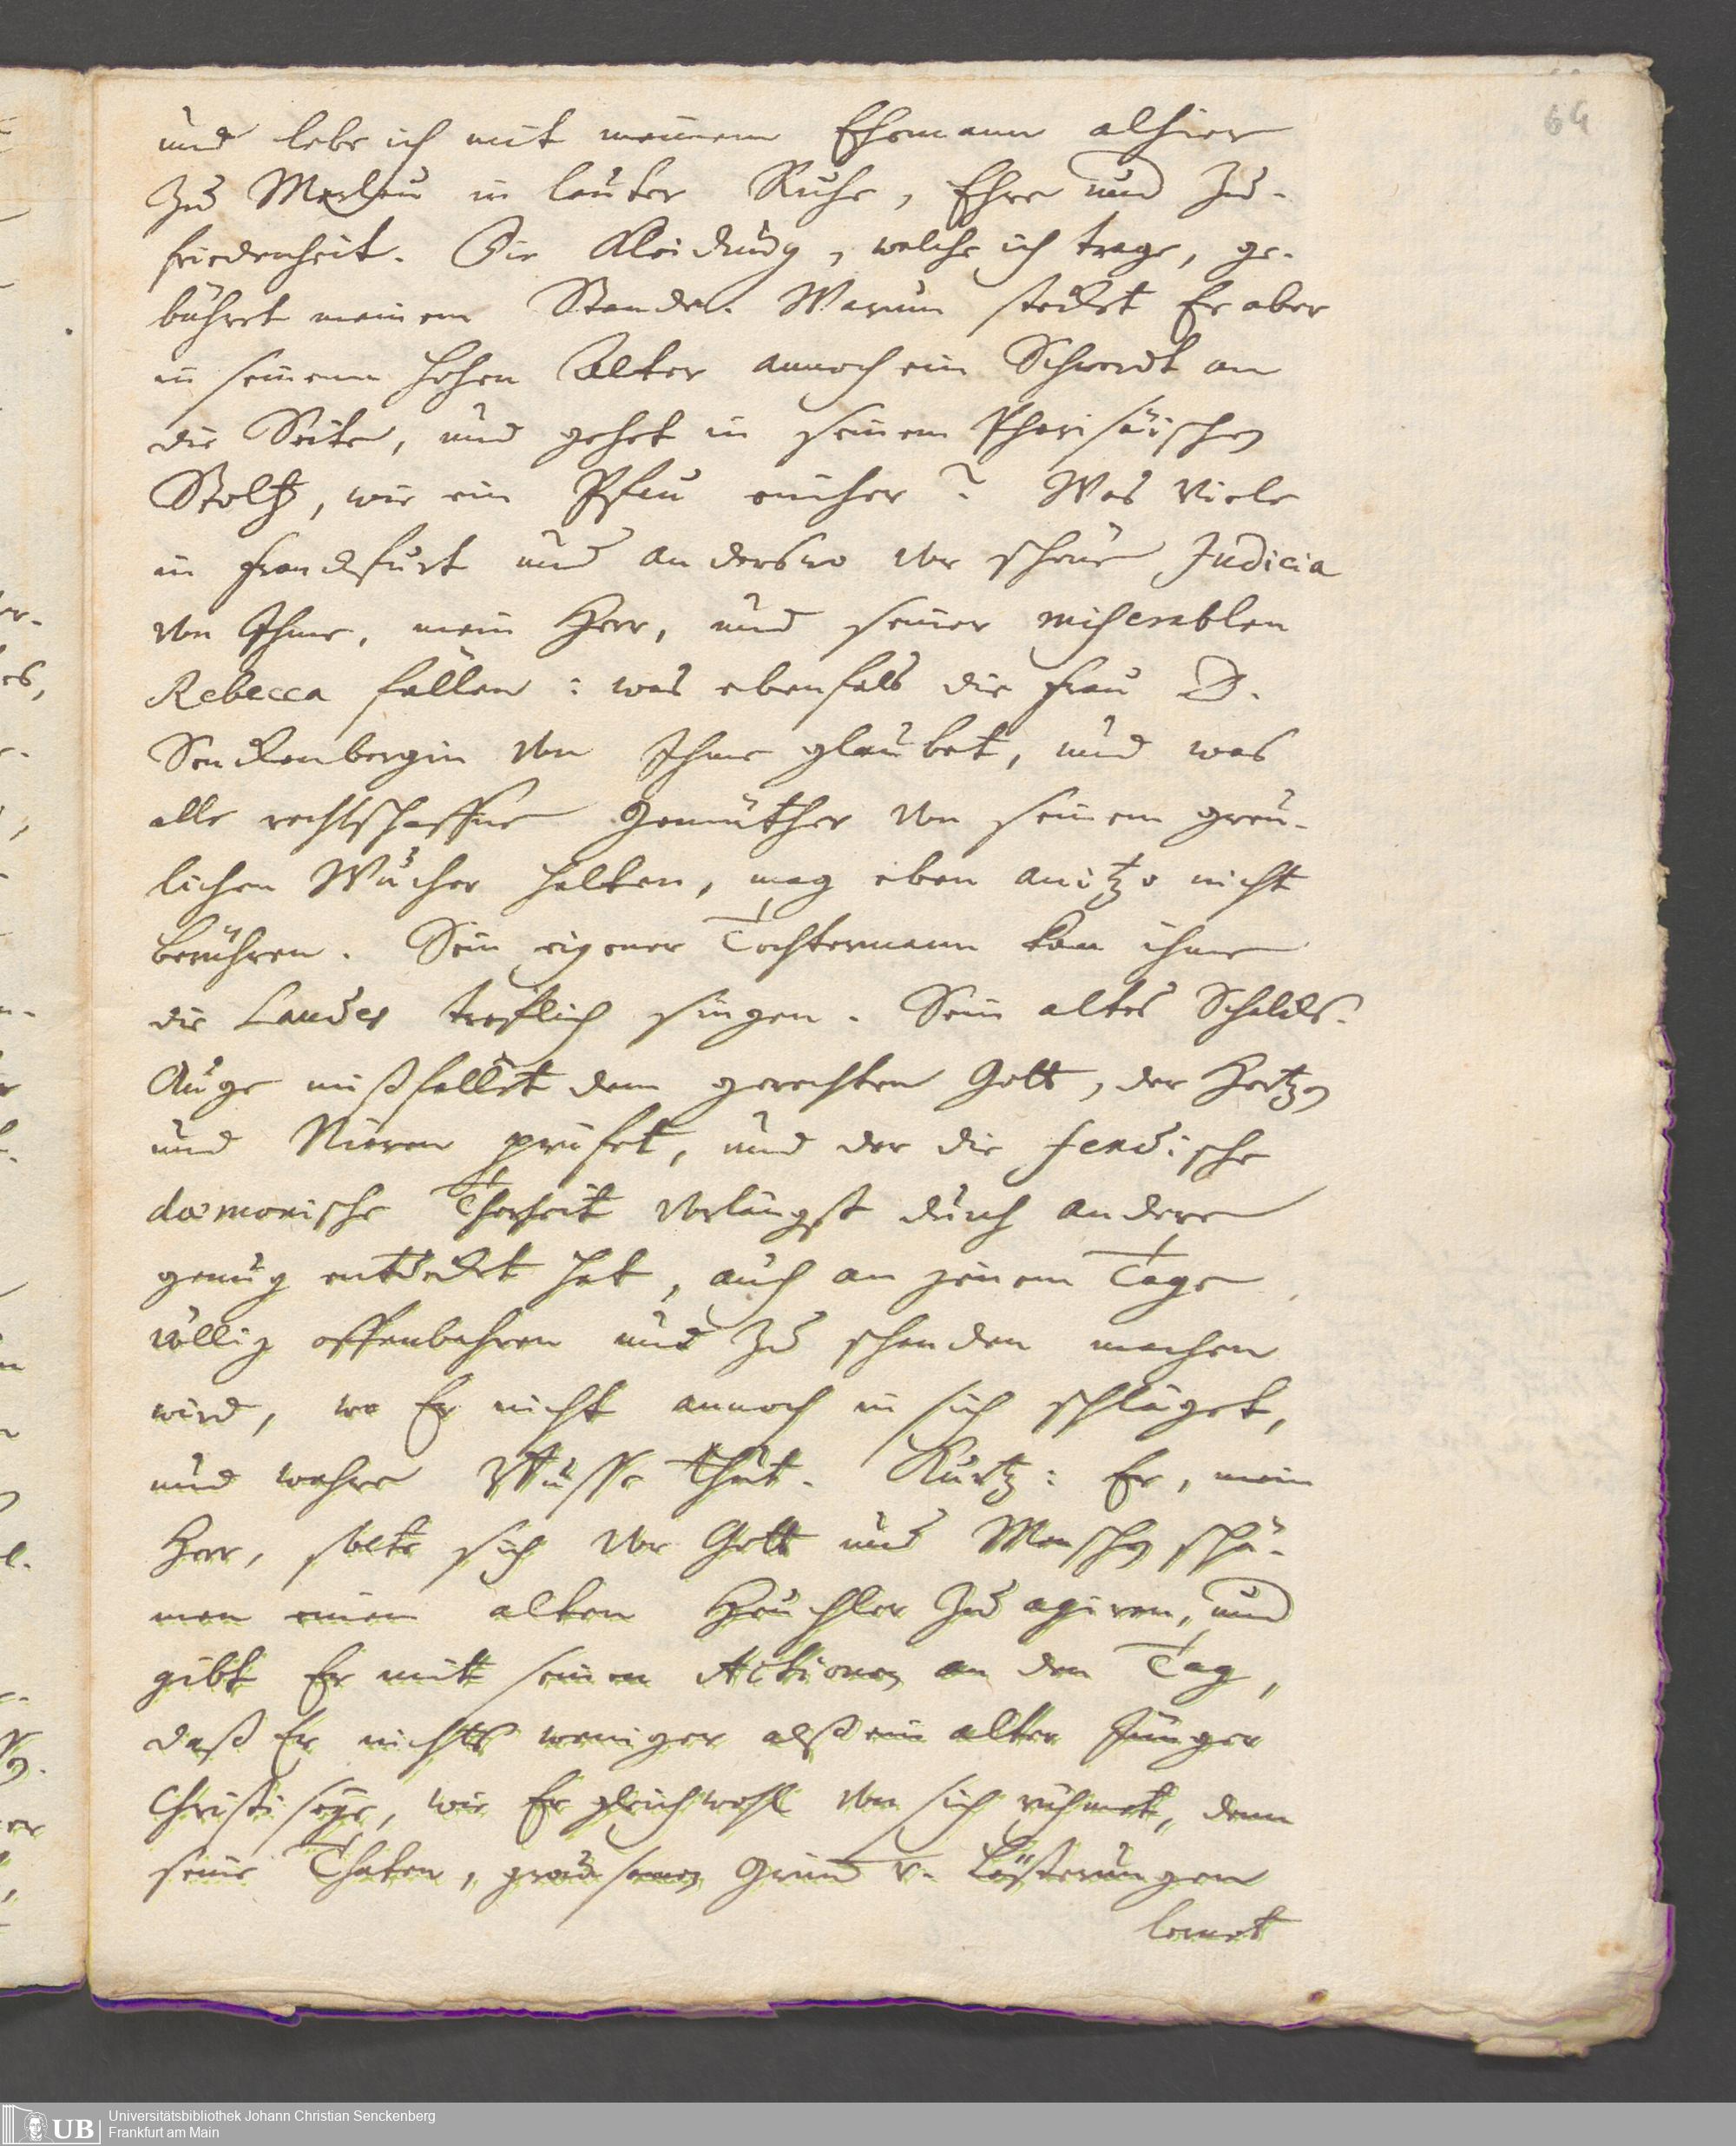 64
und lebe ich mit meinem Ehemann alhier
zu Merlau in lauter Ruhe, Ehre und Zu-
friedenheit. Die Kleidung, welche ich trage, ge-
bühret meinem Stande. Warum stecket Er aber
in seinem hohen Alter annoch ein Schwerdt an
die Seite, und gehet in seinem Pharisäischen
Stoltz, wie ein Pfau einher? Was Viele
in Franckfurt und anderswo vor schöne Judicia
von Ihme, mein Herr, und seiner miserablen
Rebecca fällen: was ebenfals die Frau D.
Senckenbergin von Ihme glaubet, und was
alle rechtschaffne Gemüther von seinem greu-
lichen Wucher halten, mag eben anitzo nicht
berühren. Sein eigener Tochtermann kan ihme
die Laudes treflich singen. Sein altes Schalcks-
Auge mißfället dem gerechten Gott, der Hertzen
und Nieren prüfet, und der die fendische
dæmonische Thorheit vorlängst durch andere
genug entdecket hat, auch an jenem Tage
völlig offenbahren und zu schanden machen
wird, wo Er nicht annoch in sich schläget,
und wahre Busse thut. Kurtz: Er, mein
Herr, solte sich vor Gott und Menschen schä-
men einen alten Heuchler zu agiren, und
gibt Er mit seinen Actionen an den Tag,
daß Er nichts weniger alß ein alter Jünger
Christi seye, wie Er gleichwohl von sich rühmet, denn
seine Thaten, grausamen Grimm u. Lästerungen
Universitätsbibliothek Johann Christian Senckenberg
UB Frankfurt am Main